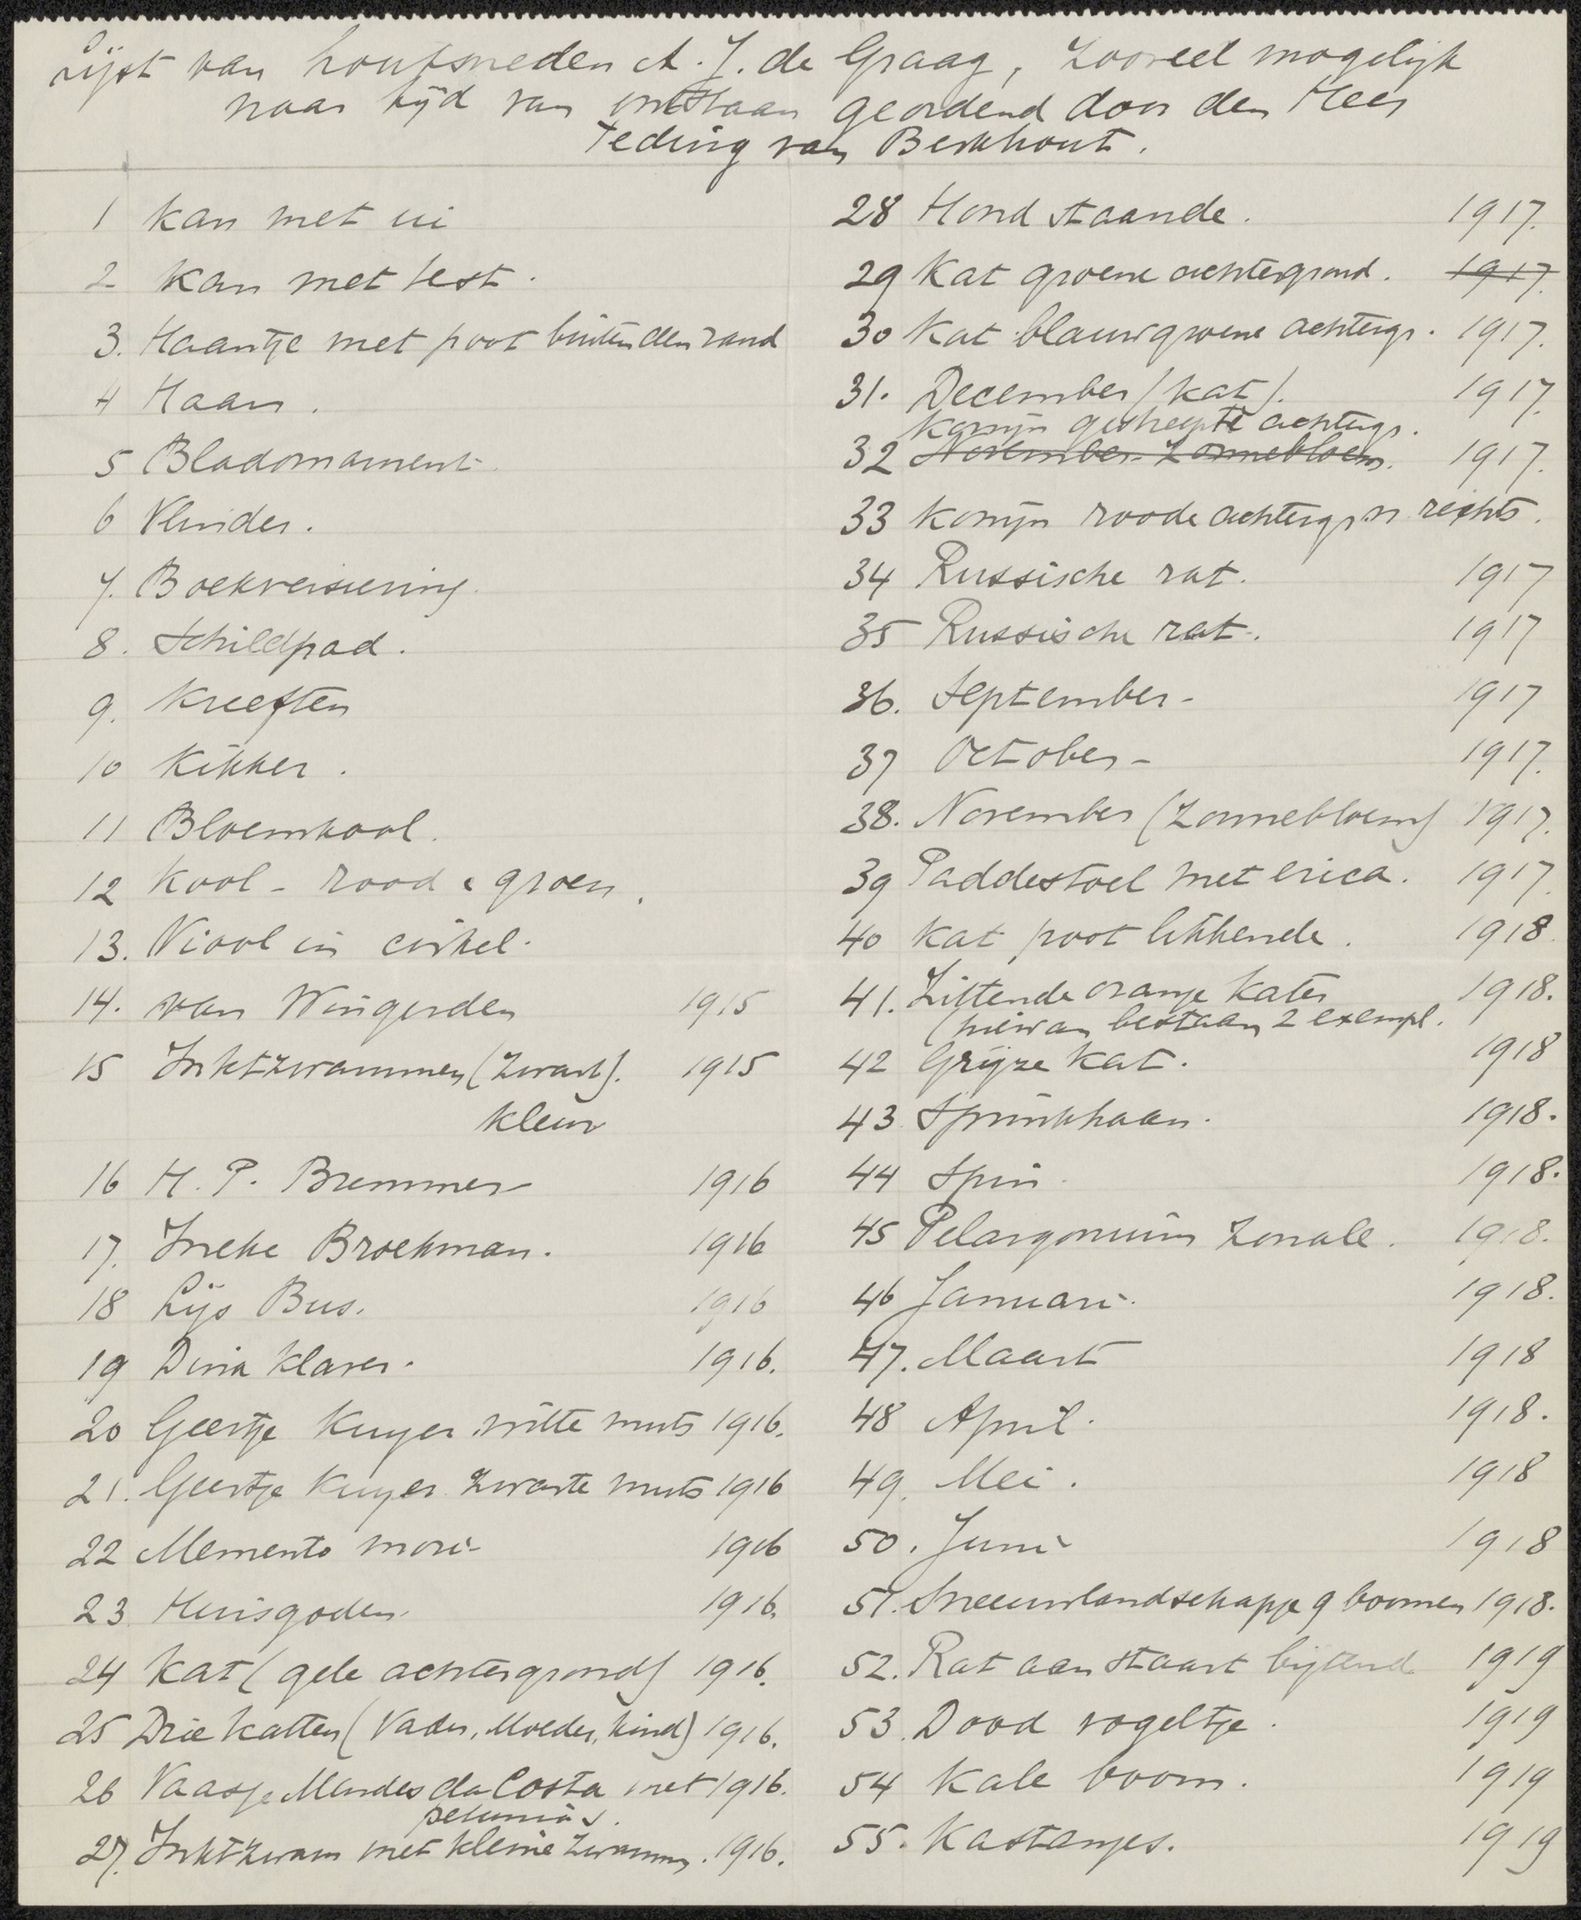 Lijst van houtsneden A. J. de Graag, zooveel mogelijk
naar tijd van ontstaan geordend door den Heer
Teding van Berkhout.
1 Kan met ui
2 Kan met test.
3. Haantje met poot buiten den rand
4 Haan.
5 Bladornament
6 Vlinder.
7. Boekversiering.
8. Schildpad.
9. Kreeften
10 Kikker.
11 Bloemkool.
12 Kool - rood & groen.
13. Viool in cirkel.
14. van Wingerden 1915
15 Inktzwammen (zwart). 1915
kleur
16 H. P. Bremmer 1916
17. Ineke Broekman. 1916
18 Lijs Bus. 1916
19 Dina Klaver. 1916.
20 Geertje Kuyer witte muts 1916.
21. Geertje Kuyer zwarte muts 1916
22 Memento mori 1916
23. Huisgoden. 1916.
24 Kat (gele achtergrond) 1916.
25 Drie katten (Vader, Moeder, kind) 1916.
26 Vaasje Mendes da Costa met 1916.
petunia's.
27. Inktzwam met kleine zwammen. 1916.
28 Hond staande. 1917.
29 Kat groene achtergrond. 1917.
30 Kat blauwgroene achtergr. 1917.
31. December (kat). 1917.
Konijn gestreepte achtergr.
32 November Zonnebloem. 1917.
33 Konijn roode achtergr n rechts.
34 Russische rat. 1917
35 Russische rat. 1917
36. September - 1917
37 October - 1917.
38. November (Zonnebloem) 1917.
39 Paddestoel met erica. 1917.
40 Kat poot likkende. 1918
41. Zittende oranje kater 1918.
(hiervan bestaan 2 exempl.
42 Grijze kat. 1918
43 Sprinkhaan. 1918.
44 Spin. 1918.
45 Pelargonium zonale. 1918.
46 Januari. 1918.
47. Maart 1918
48 April. 1918.
49. Mei. 1918
50. Juni 1918
51. Sneeuwlandschapje 9 boomen 1918.
52. Rat aan staart bijtend 1919
53. Dood vogeltje. 1919
54 Kale boom. 1919
55. Kastanjes. 1919